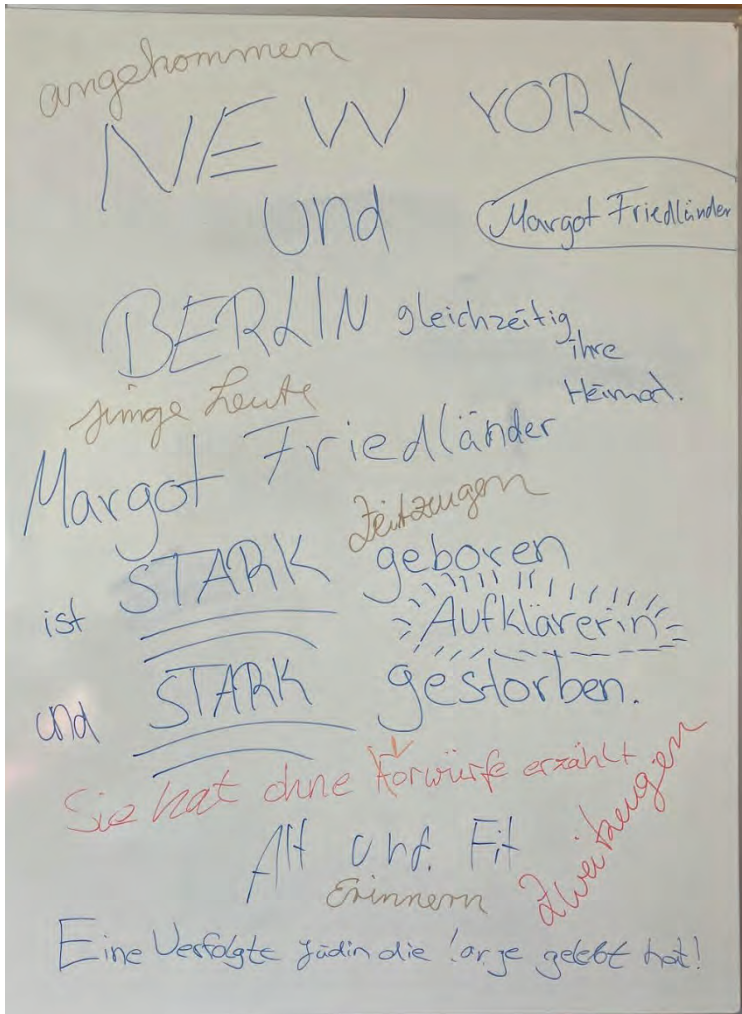 angekommen
NEW YORK
und
Margot Friedländer
BERLIN gleichzeitig
ihre
Heimad.
junge Leute
Margot Friedländer
Zeitzeugen
ist STARK geboren
Aufklärerin
und STARK gestorben.
Sie hat ohne Vorwürfe erzählt
Alt und. Fit
Zweitzeugen
Erinnern
Eine Verfolgte Jüdin die lange gelebt hat!